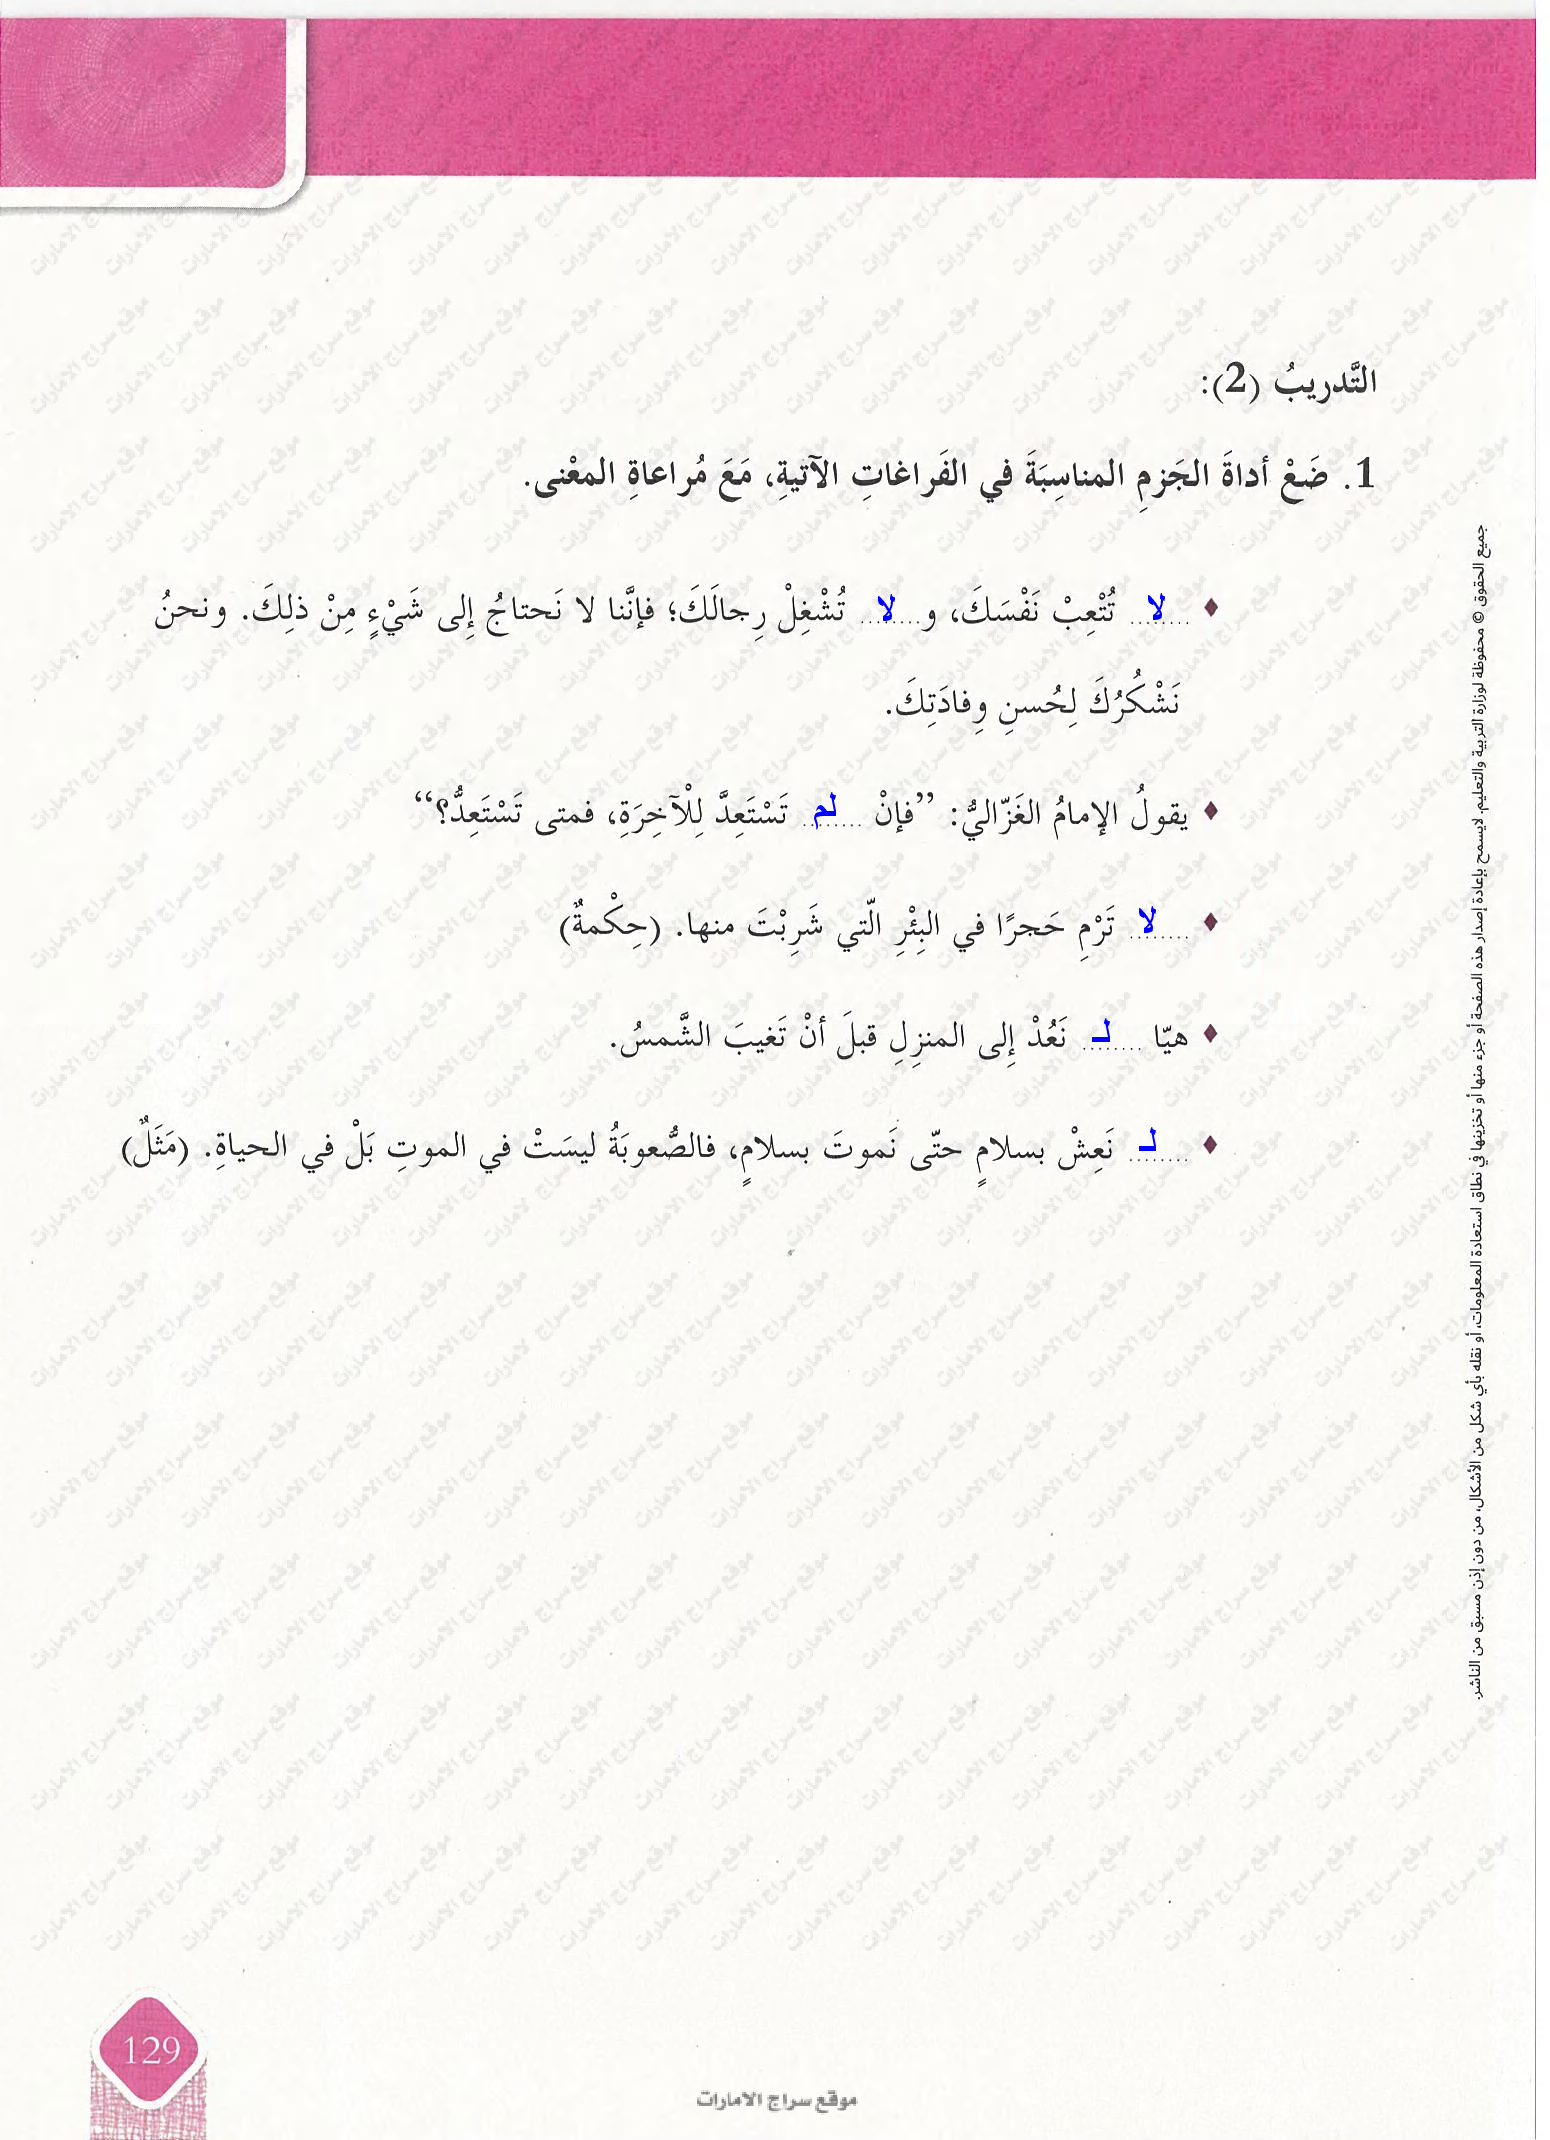 التَّدريبُ (2):
1. ضَعْ أداةَ الجَزمِ المناسِبَةَ في الفَراغاتِ الآتيةِ، مَعَ مُراعاةِ المعْنى.
♦ ..لا.. تُتْعِبْ نَفْسَكَ، و..لا.. تُشْغِلْ رِجالَكَ؛ فإنَّنا لا نَحتاجُ إِلى شَيْءٍ مِنْ ذلِكَ. ونحنُ
نَشْكُرُكَ لِحُسنِ وِفادَتِكَ.
♦ يقولُ الإمامُ الغَزّاليُّ: ”فإنْ ..لم.. تَسْتَعِدَّ لِلْآخِرَةِ، فمتى تَسْتَعِدُّ؟“
♦ ..لا.. تَرْمِ حَجرًا في البِئْرِ الّتي شَرِبْتَ منها. (حِكْمةٌ)
♦ هيّا ..لـ.. نَعُدْ إِلى المنزِلِ قبلَ أنْ تَغيبَ الشَّمسُ.
♦ ..لـ.. نَعِشْ بسلامٍ حتّى نَموتَ بسلامٍ، فالصُّعوبَةُ ليسَتْ في الموتِ بَلْ في الحياةِ. (مَثَلٌ)
جميع الحقوق © محفوظة لوزارة التربية والتعليم. لايسمح بإعادة إصدار هذه الصفحة أو جزء منها أو تخزينها في نطاق استعادة المعلومات، أو نقله بأي شكل من الأشكال، من دون إذن مسبق من الناشر.
129
موقع سراج الامارات